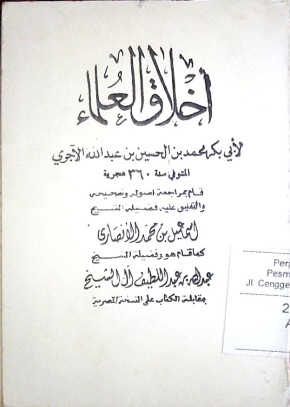 أخلاق العلماء
لأبي بكر محمد بن الحسين بن عبد الله الآجري
المتوفي سنة ٣٦٠ هجرية
قام بمراجعة أصوله وتصحيحه
والتعليق عليه فضيلة الشيخ
اسماعيل بن محمد الأنصاري
كما قام هو وفضيلة الشيخ
عبد الله بن عبد اللطيف آل الشيخ
بمقابلة الكتاب على النسخة المصرية
Per
Pesm
Jl. Cengge
2
A